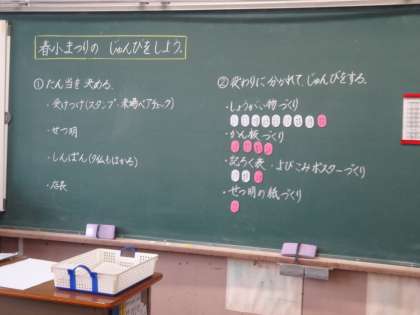 春小まつりの じゅんびをしよう。
① たん当を決める。
・受けつけ(スタンプ・来場ペアチェック)
・せつ明
・しんぱん(タイムもはかる)
・店長
② 役わりに分かれて、じゅんびをする。
・しょうがい物づくり
・かん板づくり
・記ろく表・よびこみポスターづくり
・せつ明の紙づくり